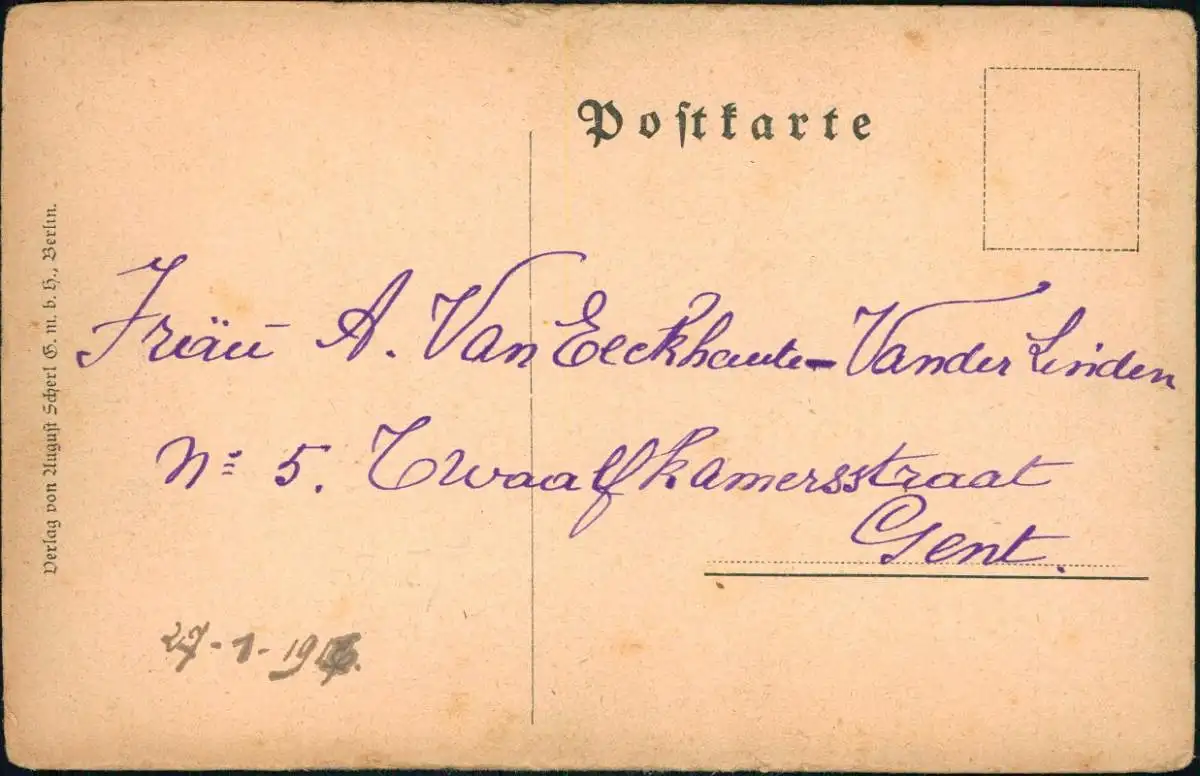 Postkarte
Verlag von August Scherl G. m. b. H., Berlin.
Fräu A. Van Eeckhaute-Vander Linden
No 5. Twaalfkamersstraat
Gent.
27-1-1916.